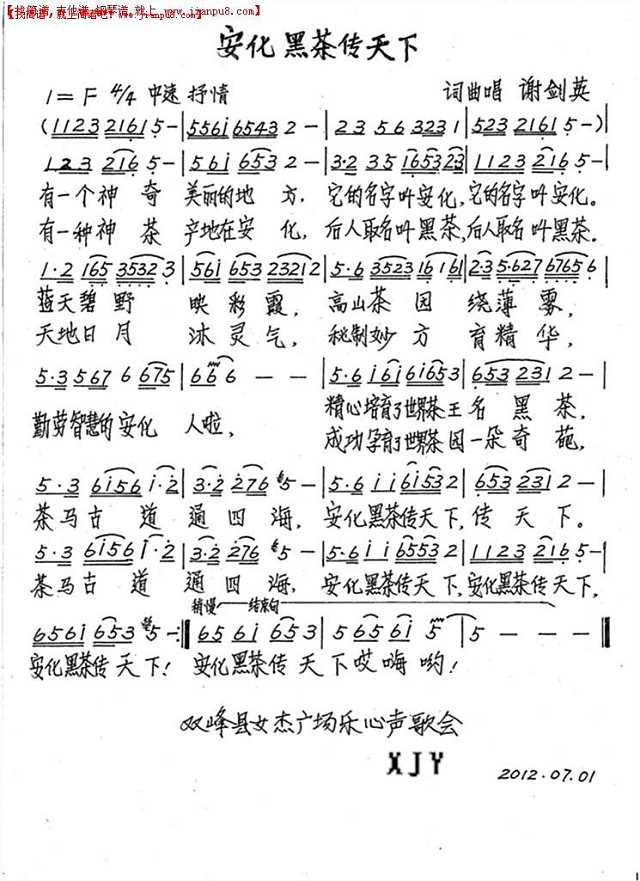 【找简谱,吉他谱,钢琴谱,就上 www.jianpu8.com】
安化黑茶传天下
1=F 4/4 中速 抒情 词曲唱 谢剑英
(1123 2161 5 - | 5561 6543 2 - | 23 56 323 1 | 523 2161 5 -)
1123 216 5 - | 561 653 2 - | 3·2 35 1653 23 | 1123 216 5 - |
有一个神奇 美丽的地方, 它的名字叫安化,它的名字叫安化。
有一种神茶 产地在安化, 后人取名叫黑茶,后人取名叫黑茶.
1·2 165 3532 3 | 561 653 23212 | 5·6 3523 16 161 | 2·3 5·627 6765 6 |
蓝天碧野 映彩霞, 高山茶园 绕薄雾,
天地日月 沐灵气, 秘制妙方 育精华,
5·3 567 6 675 | 666 - - | 5·6 161 61653 | 653 231 2 - |
精心培育了世界茶王名黑茶,
勤劳智慧的安化人啦,
成功孕育了世界茶园一朵奇葩,
5·3 6156 1·2 | 3·2 276 5 - | 5·6 11 61532 | 653 231 2 - |
茶马古道通四海, 安化黑茶传天下,传天下。
5·3 6156 1·2 | 3·2 276 5 - | 5·6 11 6553 2 | 1123 216 5 - |
茶马古道 通四海, 安化黑茶传天下,安化黑茶传天下,
稍慢 结束句
6561 653 5 - :‖ 65 61 653 | 5 65 61 5 | 5 - - - ‖
安化黑茶传天下! 安化黑茶传天下哎嗨哟!
双峰县女杰广场乐心声歌会
XJY
2012.07.01